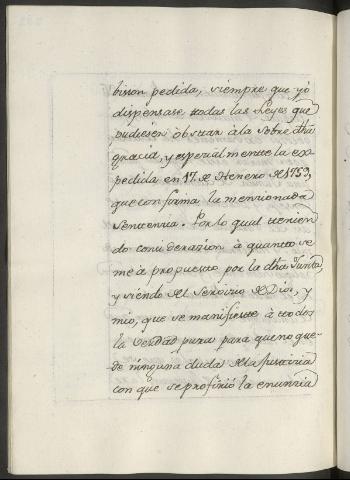 bision pedida, siempre que yó
dispensase todas las Leyes que
pudiesen obstar à la sobre dha
gracia, y especialmente la ex-
pedida en 17. de Henero de 1753,
que conforma la mencionada
Sentencia. Por lo qual tenien
do consideracion à quanto se
me à propuesto por la dha Junta,
y siendo del Servicio de Dios, y
mio, que se manifieste à todos
la Verdad pura para que no que-
de ninguna duda de la Justicia
con que se profirió la enuncia